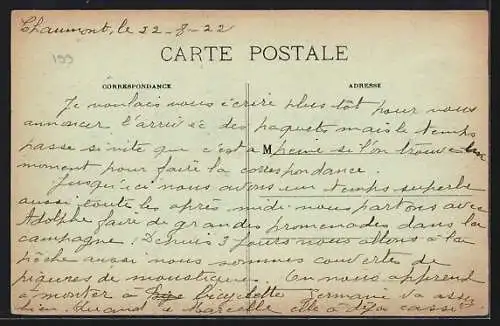 Chaumont, le 22-8-22
199
CARTE POSTALE
CORRESPONDANCE
ADRESSE
Je voulais vous écrire plus tôt pour vous
annoncer l'arrivée des paquets mais le temps
passe si vite que c'est à M peine si l'on trouve un
moment pour faire la correspondance.
Jusqu'ici nous avons un temps superbe
aussi toute les après midi nous partons avec
Adolphe faire de grandes promenades dans la
campagne. Depuis 3 jours nous allons à la
pêche aussi nous sommes couvertes de
piqures de moustiques On nous apprend
à monter à bicyclette Germaine va assez
bien. Quand à Marcelle elle a déjà cassé